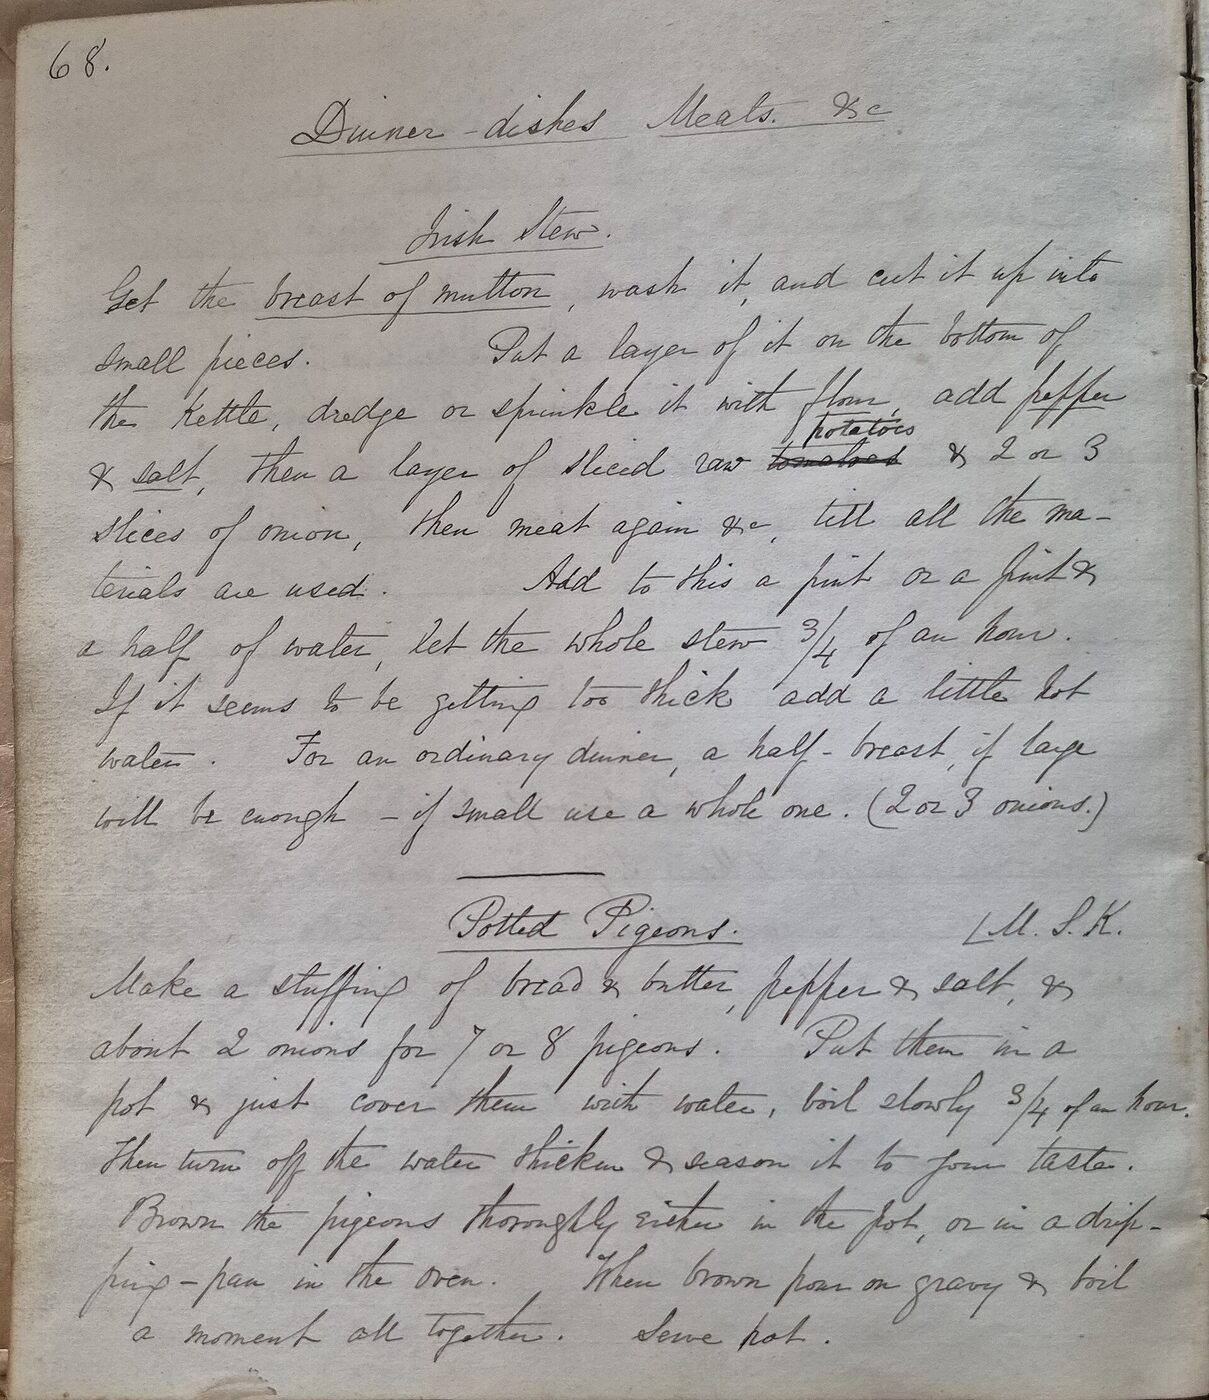 68.
Dinner-dishes Meats. &c
Irish Stew.
Get the breast of mutton, wash it, and cut it up into
small pieces. Put a layer of it on the bottom of
the kettle, dredge or sprinkle it with flour, add pepper
potatoes
& salt, then a layer of sliced raw tomatoes & 2 or 3
slices of onion, then meat again &c, till all the ma-
terials are used. Add to this a pint or a pint &
a half of water, let the whole stew 3/4 of an hour.
If it seems to be getting too thick add a little hot
water. For an ordinary dinner, a half-breast, if large
will be enough - if small use a whole one. (2 or 3 onions.)
Potted Pigeons. M. S. K.
Make a stuffing of bread & butter, pepper & salt, &
about 2 onions for 7 or 8 pigeons. Put them in a
pot & just cover them with water, boil slowly 3/4 of an hour.
Then turn off the water thicken & season it to your taste.
Brown the pigeons thoroughly either in the pot, or in a drip-
ping-pan in the oven. When brown pour on gravy & boil
a moment all together. Serve hot.